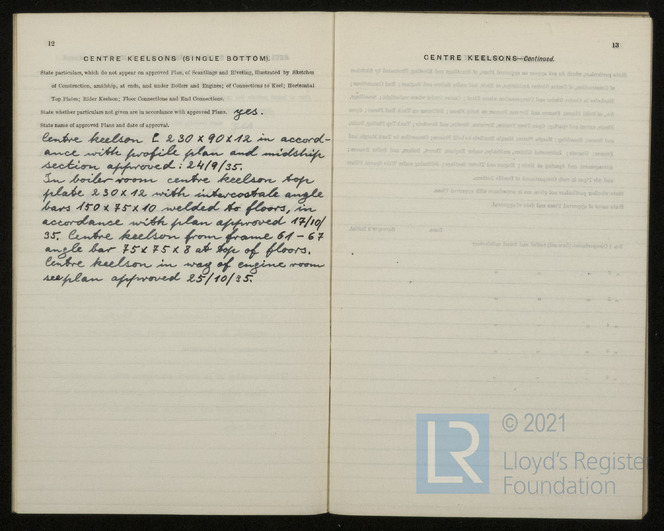 12
CENTRE KEELSONS (SINGLE BOTTOM).
State particulars, which do not appear on approved Plan, of Scantlings and Riveting, illustrated by Sketches
of Construction, amidship, at ends, and under Boilers and Engines; of Connections to Keel; Horizontal
Top Plates; Rider Keelson; Floor Connections and End Connections.
State whether particulars not given are in accordance with approved Plans. yes.
State name of approved Plans and date of approval.
Centre keelson [ 230 x 90 x 12 in accord-
ance with profile plan and midship
section approved: 24/9/35.
In boiler room centre keelson top
plate 230 x 12 with intercostale angle
bars 150 x 75 x 10 welded to floors, in
accordance with plan approved 17/10/
35. Centre keelson from frame 61 - 67
angle bar 75 x 75 x 8 at top of floors.
Centre keelson in way of engine room
see plan approved 25/10/35.
13
CENTRE KEELSONS—Continued.
LR
© 2021
Lloyd's Register
Foundation